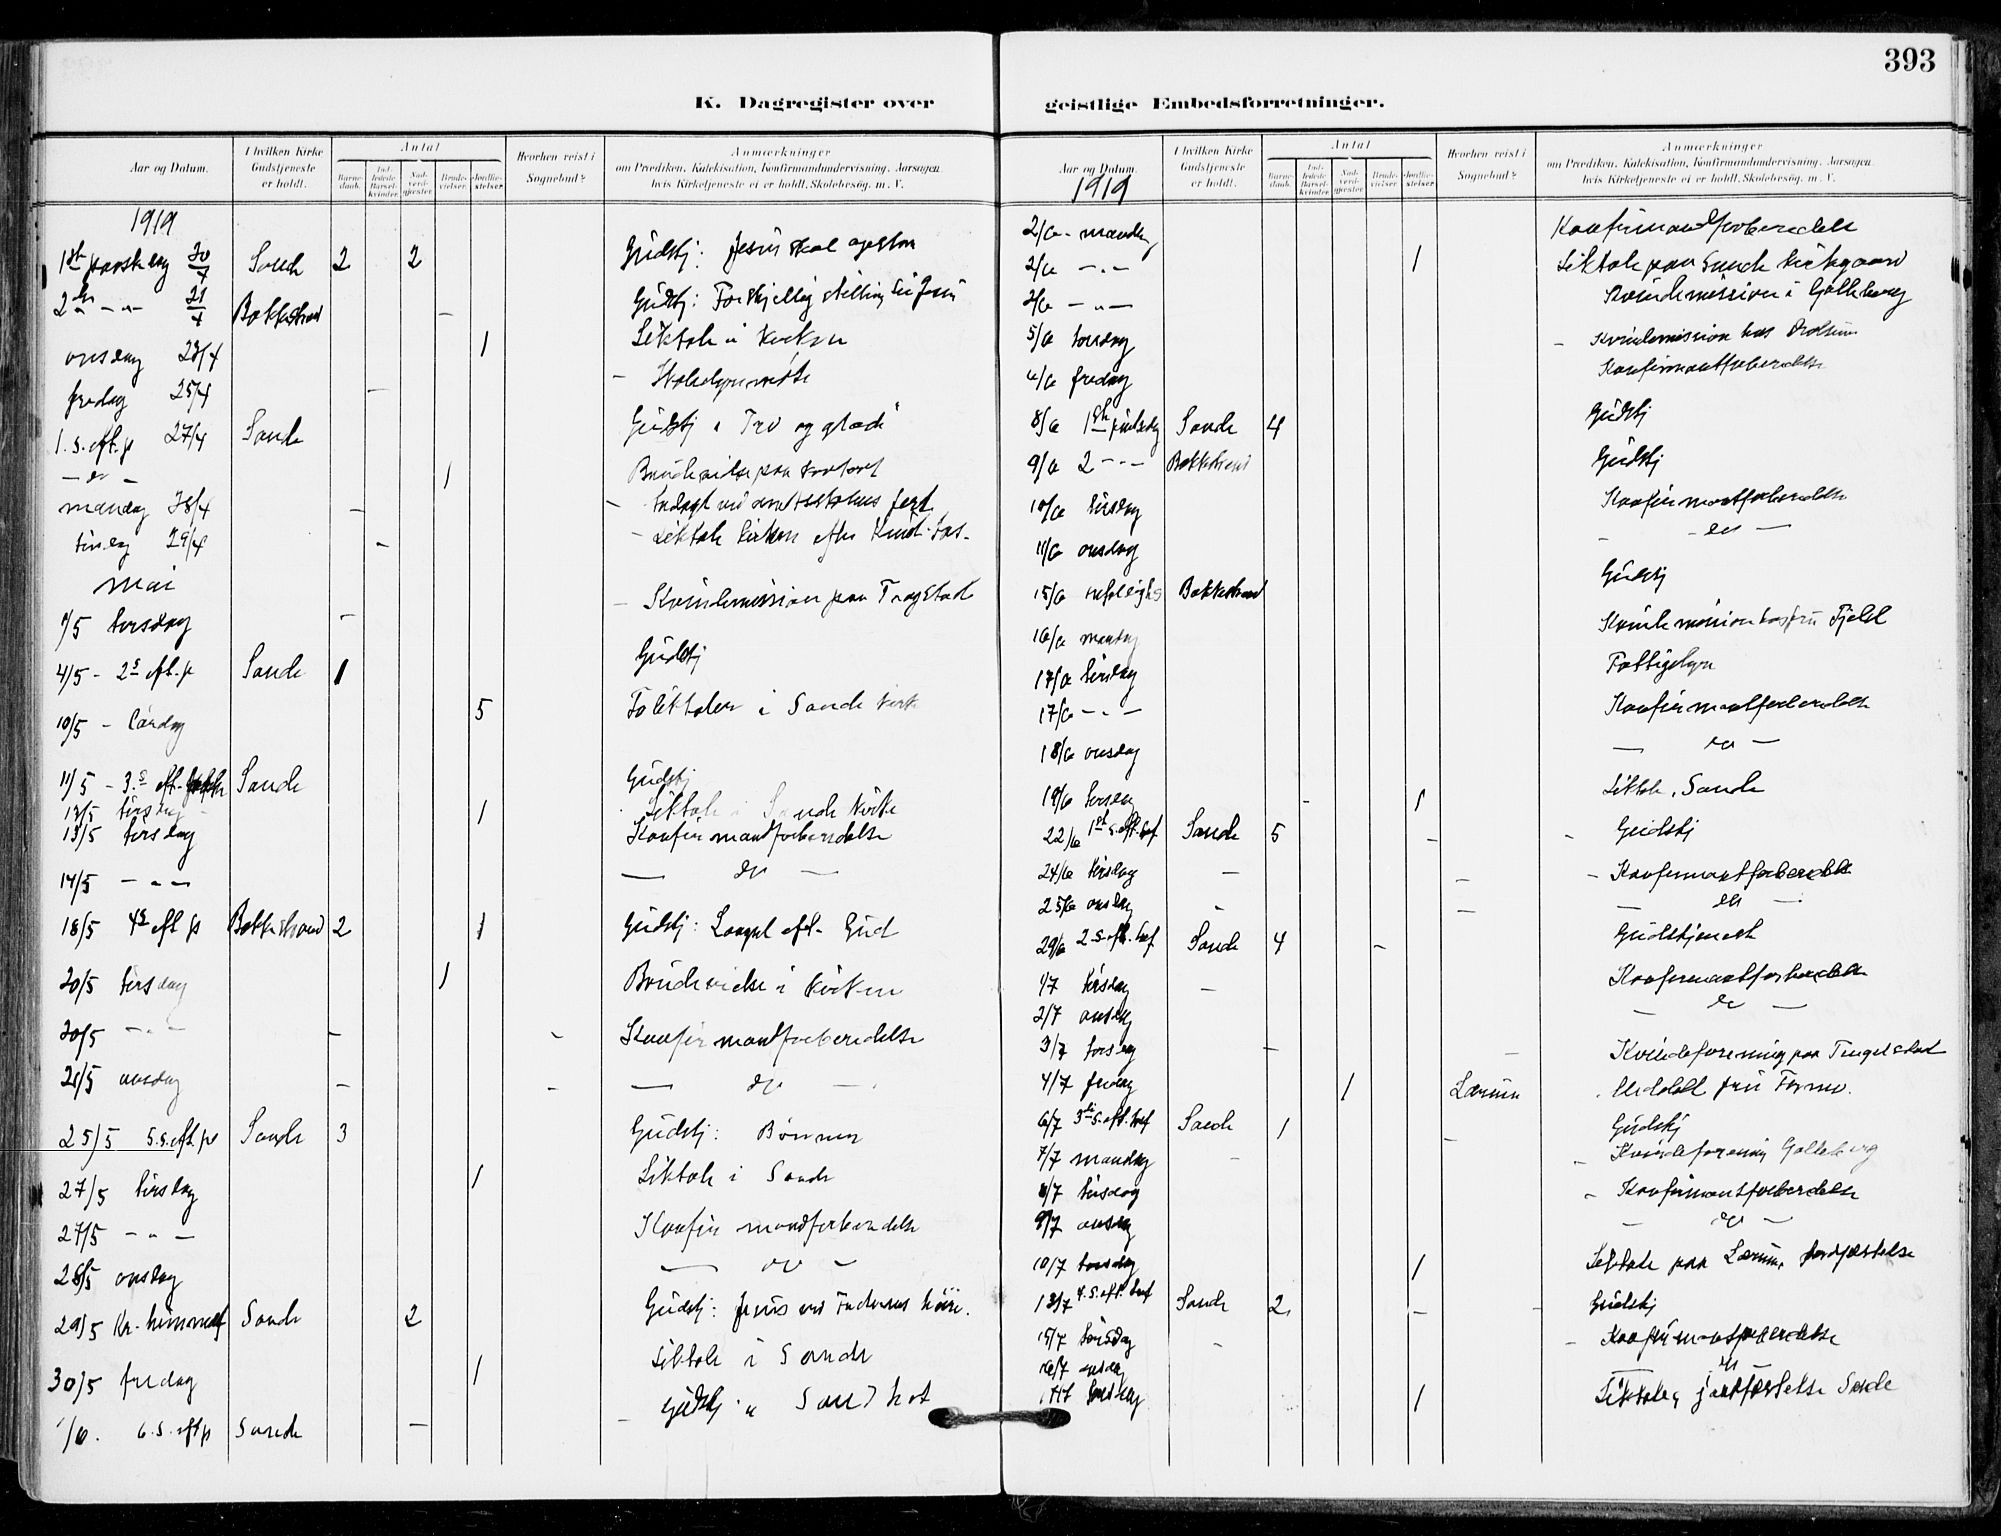 393
K. Dagregister over
geistlige Embedsforretninger.
Aar og Datum.
I hvilken Kirke Gudstjeneste er holdt.
Antal
Barne-daab.
Ind-ledede Barsel-kvinder.
Nad-verd-gjester.
Brude-vielser.
Jordfæ-stelser.
Hvorhen reist i Sognebud?
Anmærkninger
om Prædiken, Katekisation, Konfirmandundervisning, Aarsagen,
hvis Kirketjeneste ei er holdt, Skolebesøg, m. V.
1919
1ste paaskedag 20/4 Sande 2 2 Gudstj: Jesus skal
2den - " - 21/4 Bakkestrand Gudstj: Forskjellig stilling til Jesu
onsdag 23/4 1 Liktale i kirken
fredag 25/4
1. s. eft. p 27/4 Sande Gudstj " Tro og glæde"
- do - 1 Brudevielse paa kontoret
mandag 28/4
tirsdag 29/4 Liktale kirken efter
mai
1/5 torsdag Kvindemission paa Tragstad
4/5 - 2s eft. p Sande 1 Gudstj
10/5 - lørdag 5 i Sande kirke
11/5 - 3. s eft. Sande Gudstj
13/5 tirsdag 1 Liktale i Sande kirke
13/5 tirsdag Konfirmandforberedelse
14/5 - " - do -
18/5 4s eft p Bakkestrand 2 1 Gudstj: Længsel eft. Gud
20/5 tirsdag 1 Brudevielse i kirken
20/5 - " - Konfirmandforberedelse
21/5 onsdag - do -
25/5 5. s. eft. p Sande 3 Gudstj: Bønnen
27/5 tirsdag 1 Liktale i Sande
27/5 - " - Konfirmandforberedelse
28/5 onsdag - do -
29/5 Kr. himmelf Sande 2 Gudstj: Jesus ved Faderens høire.
30/5 fredag 1 Liktale i Sande
1/6. 6. s. eft p Sande Gudstj
Aar og Datum.
I hvilken Kirke Gudstjeneste er holdt.
Antal
Barne-daab.
Ind-ledede Barsel-kvinder.
Nad-verd-gjester.
Brude-vielser.
Jordfæ-stelser.
Hvorhen reist i Sognebud?
Anmærkninger
om Prædiken, Katekisation, Konfirmandundervisning, Aarsagen,
hvis Kirketjeneste ei er holdt, Skolebesøg, m. V.
1919
2/6 - mandag Konfirmandforberedelse
2/6 - " - 1 Liktale paa Sande kirkegaard
2/6 - " - Kvindemission i Golleberg
5/6 torsdag Kvindemission hos
6/6 fredag Konfirmantforberedelse
8/6 1ste pinsedag Sande 4 Gudstj
9/6 2 - " - Bakkestrand Gudstj
10/6 tirsdag Konfirmantforberedelse
11/6 onsdag - do -
15/6 Bakkestrand Gudstj
16/6 mandag Kvindemission hos fru Fjeld
17/6 tirsdag Fattigstyre
17/6 - " - Konfirmantforberedelse
18/6 onsdag - do -
19/6 torsdag 1 Liktale, Sande
22/6 1st s. eft. tref. Sande 5 Gudstj
24/6 tirsdag Konfirmantforberedelse
25/6 onsdag - do -
29/6 2. s. eft. tref Sande 4 Gudstjeneste
1/7 tirsdag Konfirmantforberedelse
2/7 onsdag - do -
3/7 torsdag Kvindeforening paa Tingelstad
4/7 fredag 1 Lærum
6/7 3die s. eft. tref Sande 1 Gudstj
7/7 mandag Kvindeforening Golleberg
8/7 tirsdag Konfirmantforberedelse
9/7 onsdag - do -
10/7 torsdag 1 Liktale paa Lærum, jordfæstelse
13/7 4. s. eft. tref Sande 2 Gudstj
15/7 tirsdag Konfirmantforberedelse
16/7 onsdag do
17/7 torsdag 1 Liktale, jordfæstelse Sande